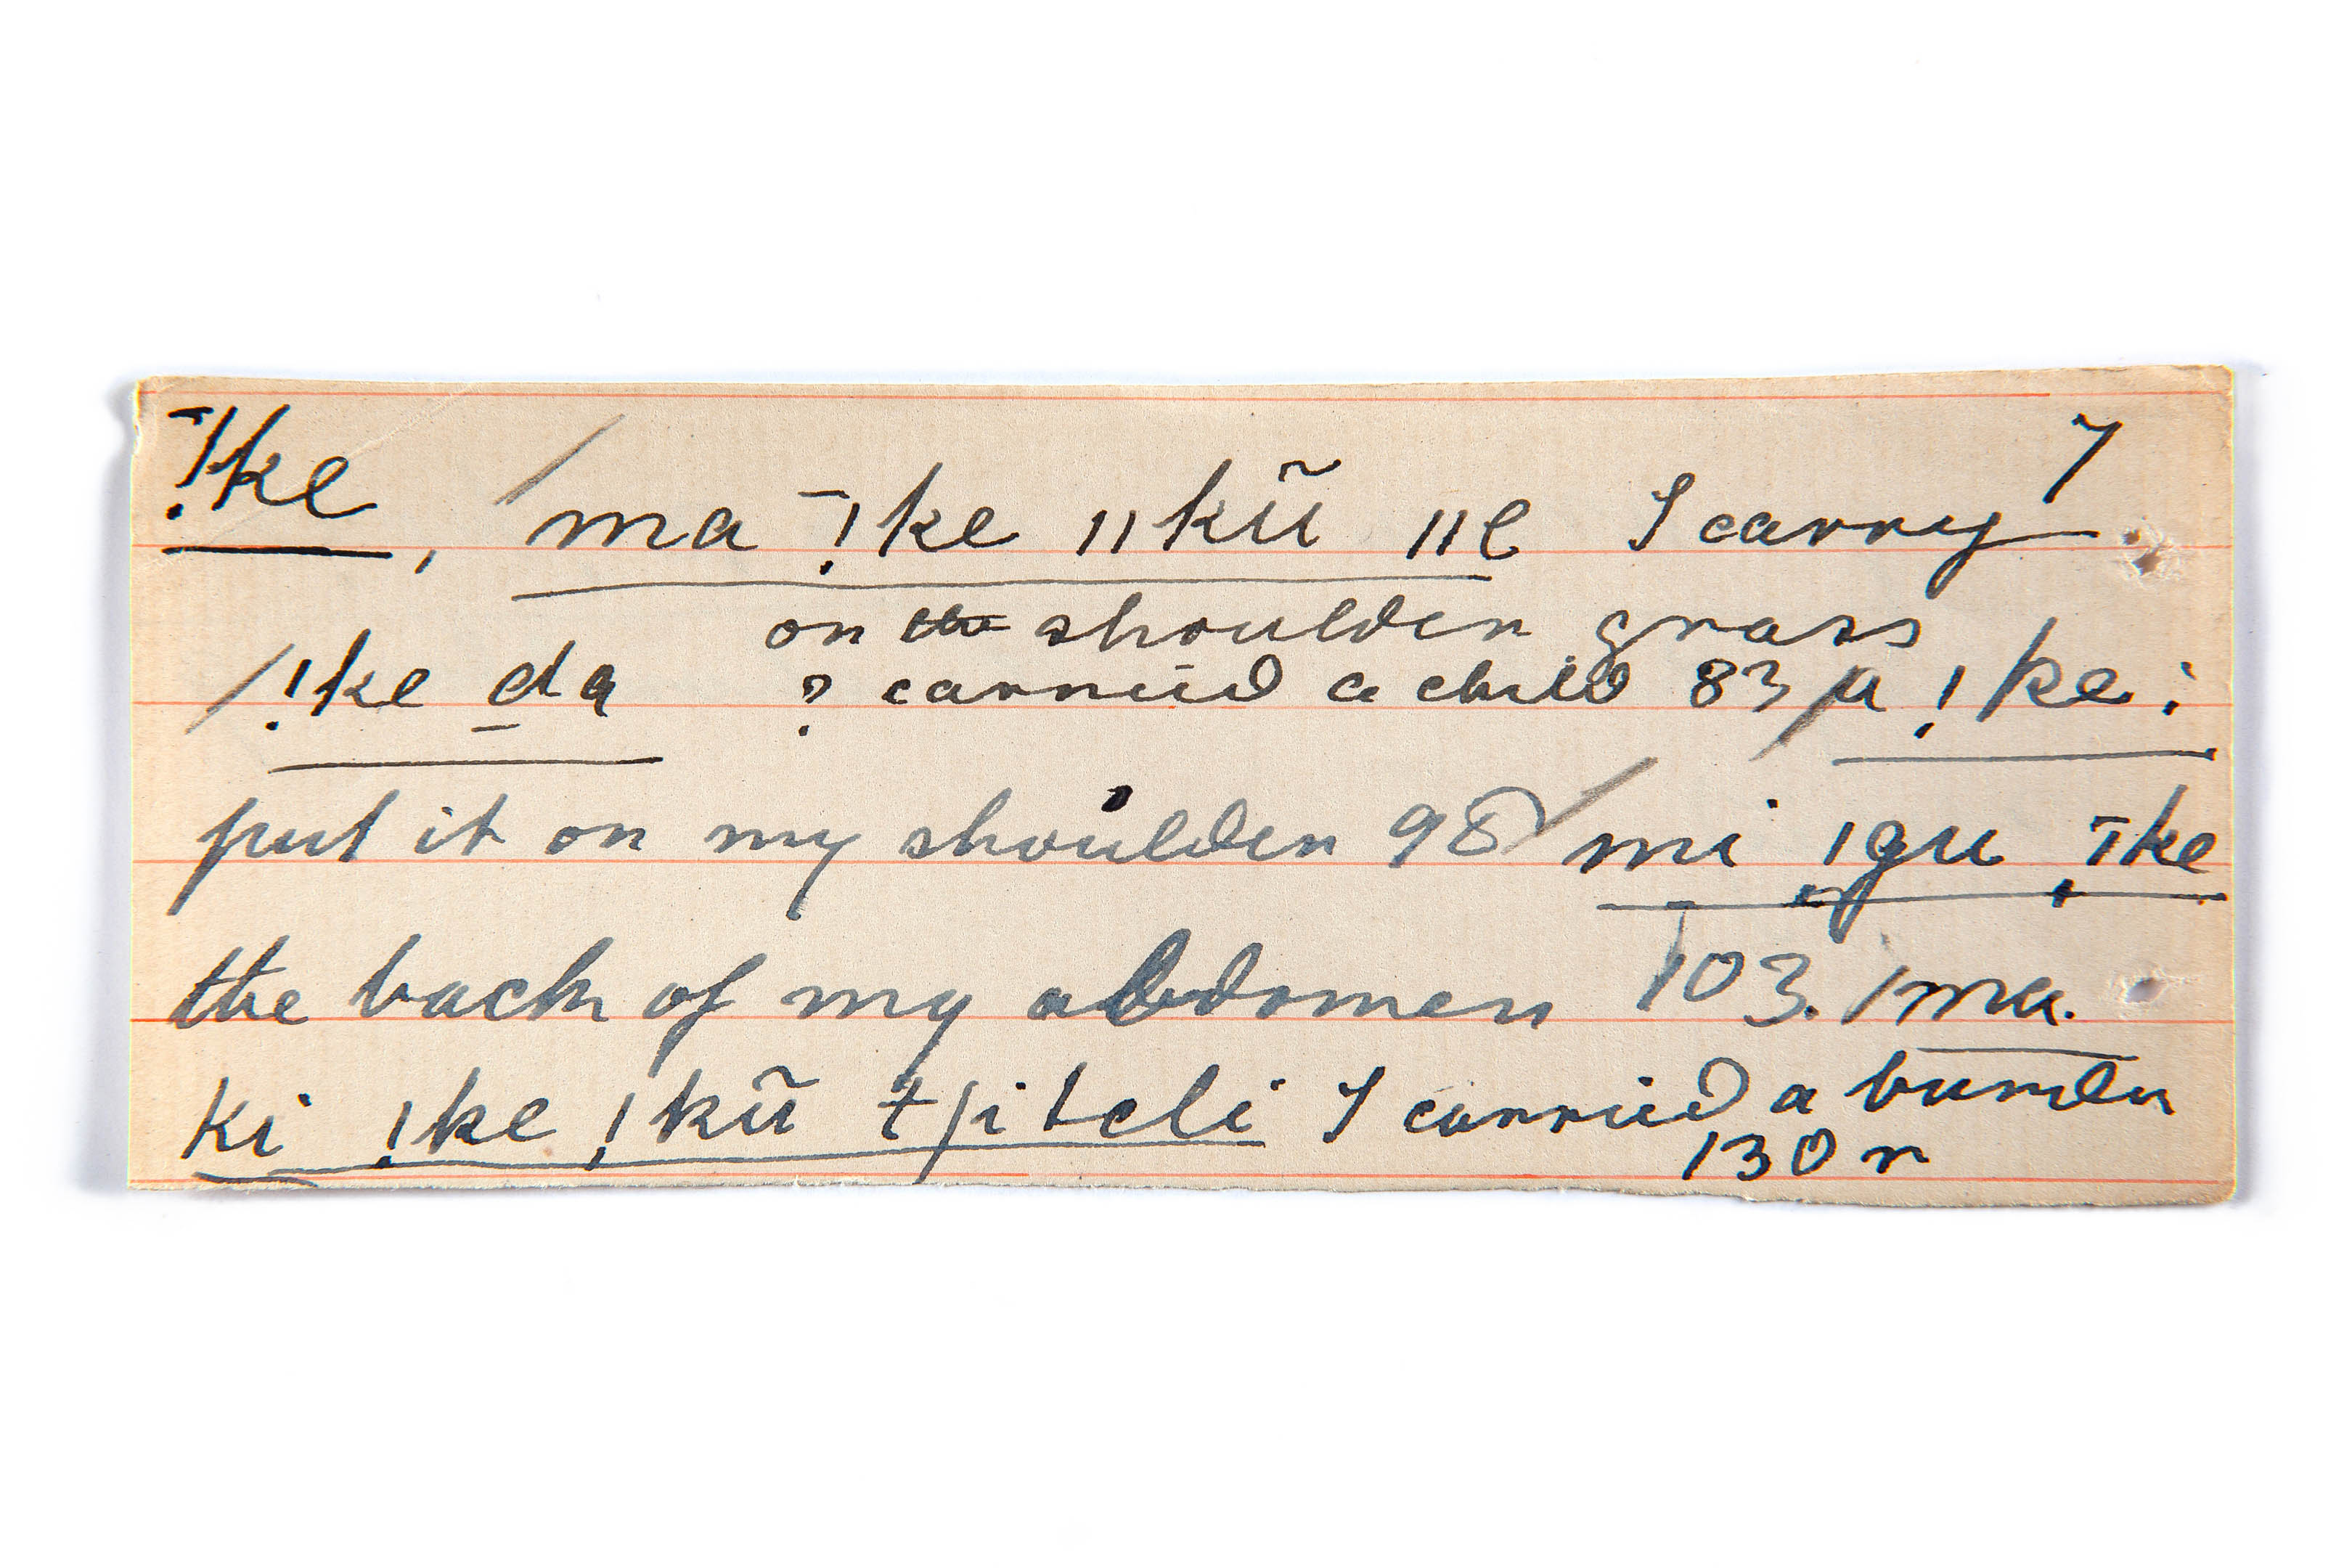 7
ˉ!ke, ma ˉ!ke ǁkũ ǁe I carry
on the shoulder grass
!ke da ? carried a child 83 µ !ke:
put it on my shoulder 98 mi !gu ˉ!ke
the back of my abdomen 103. ma.
ki !ke !kũ tʃiteli I carried a burden
130 r